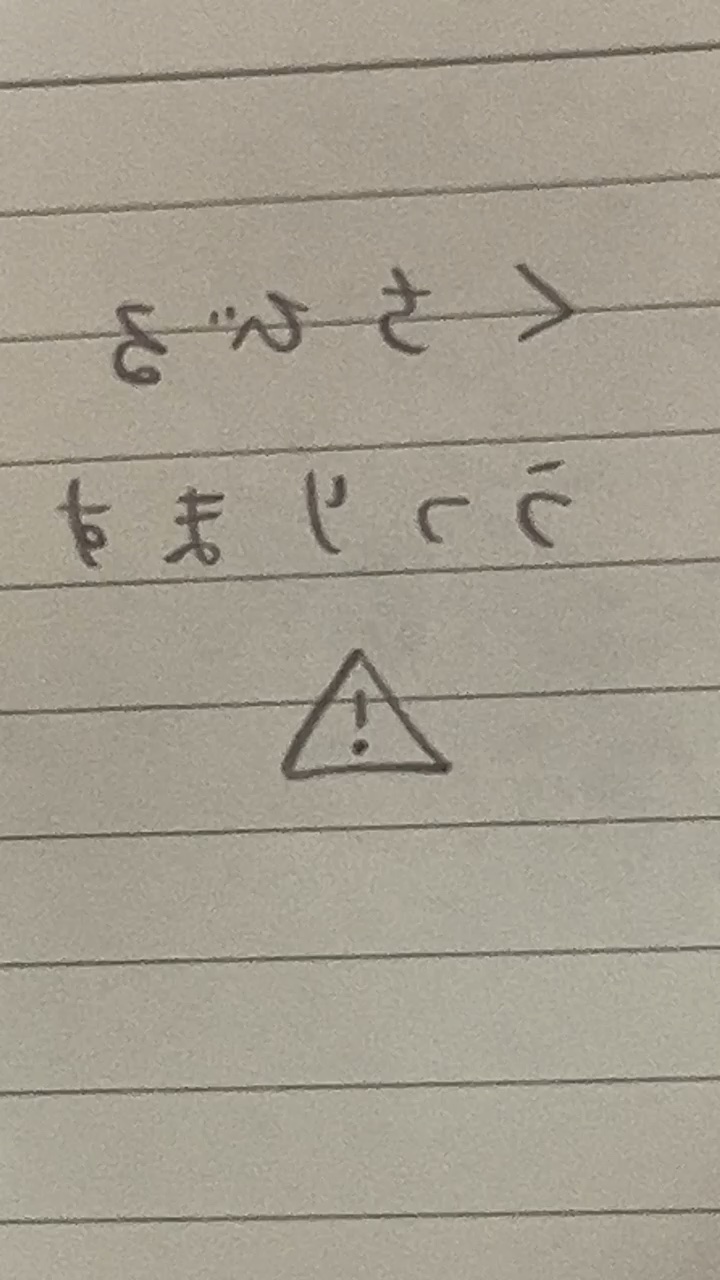 くちびる
うつります
!